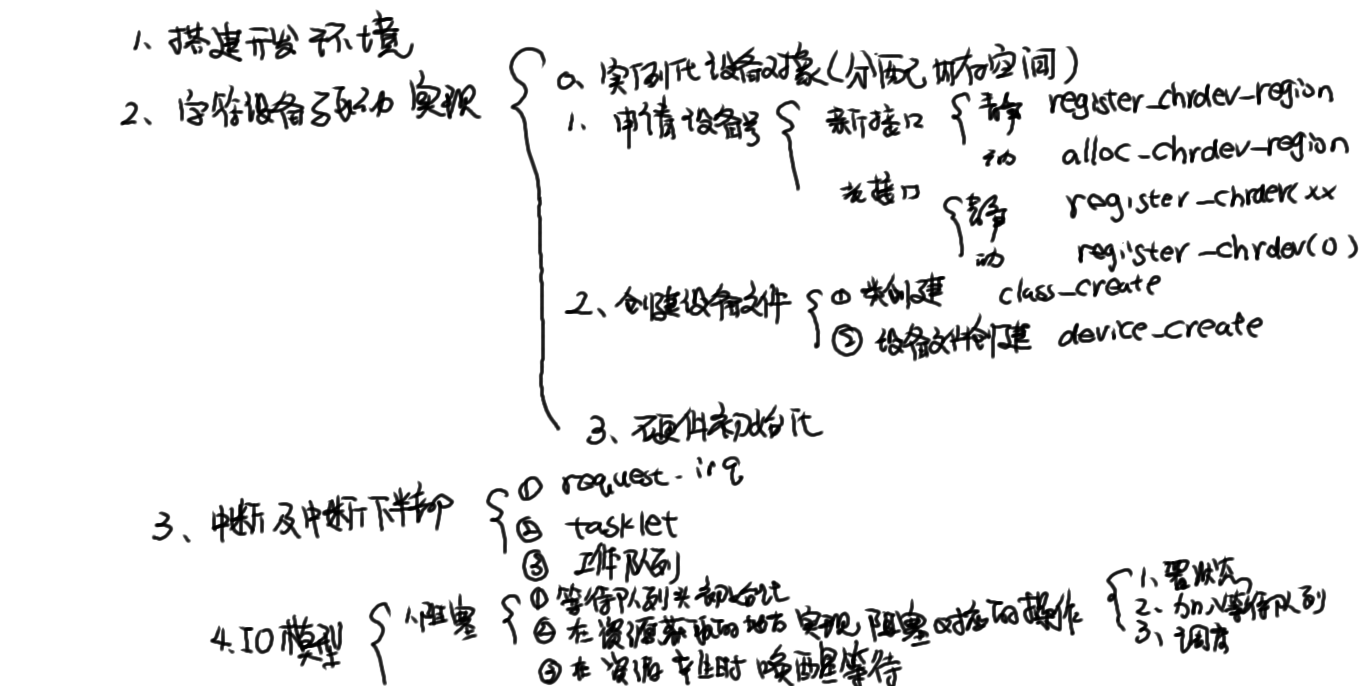 1、搭建开发环境
2、字符设备驱动实现
0、实例化设备对象(分配内存空间)
1、申请设备号
新接口
静 register_chrdev_region
动 alloc_chrdev_region
老接口
静 register_chrdev(xx
动 register_chrdev(0)
2、创建设备文件
① 类创建 class_create
② 设备文件创建 device_create
3、硬件初始化
3、中断及中断下半部
① request_irq
② tasklet
③ 工作队列
4.IO模型
1、阻塞
① 等待队列头初始化
② 在资源获取的地方实现阻塞 的操作
1、置状态
2、加入等待队列
3、调度
③ 在资源产生时唤醒等待